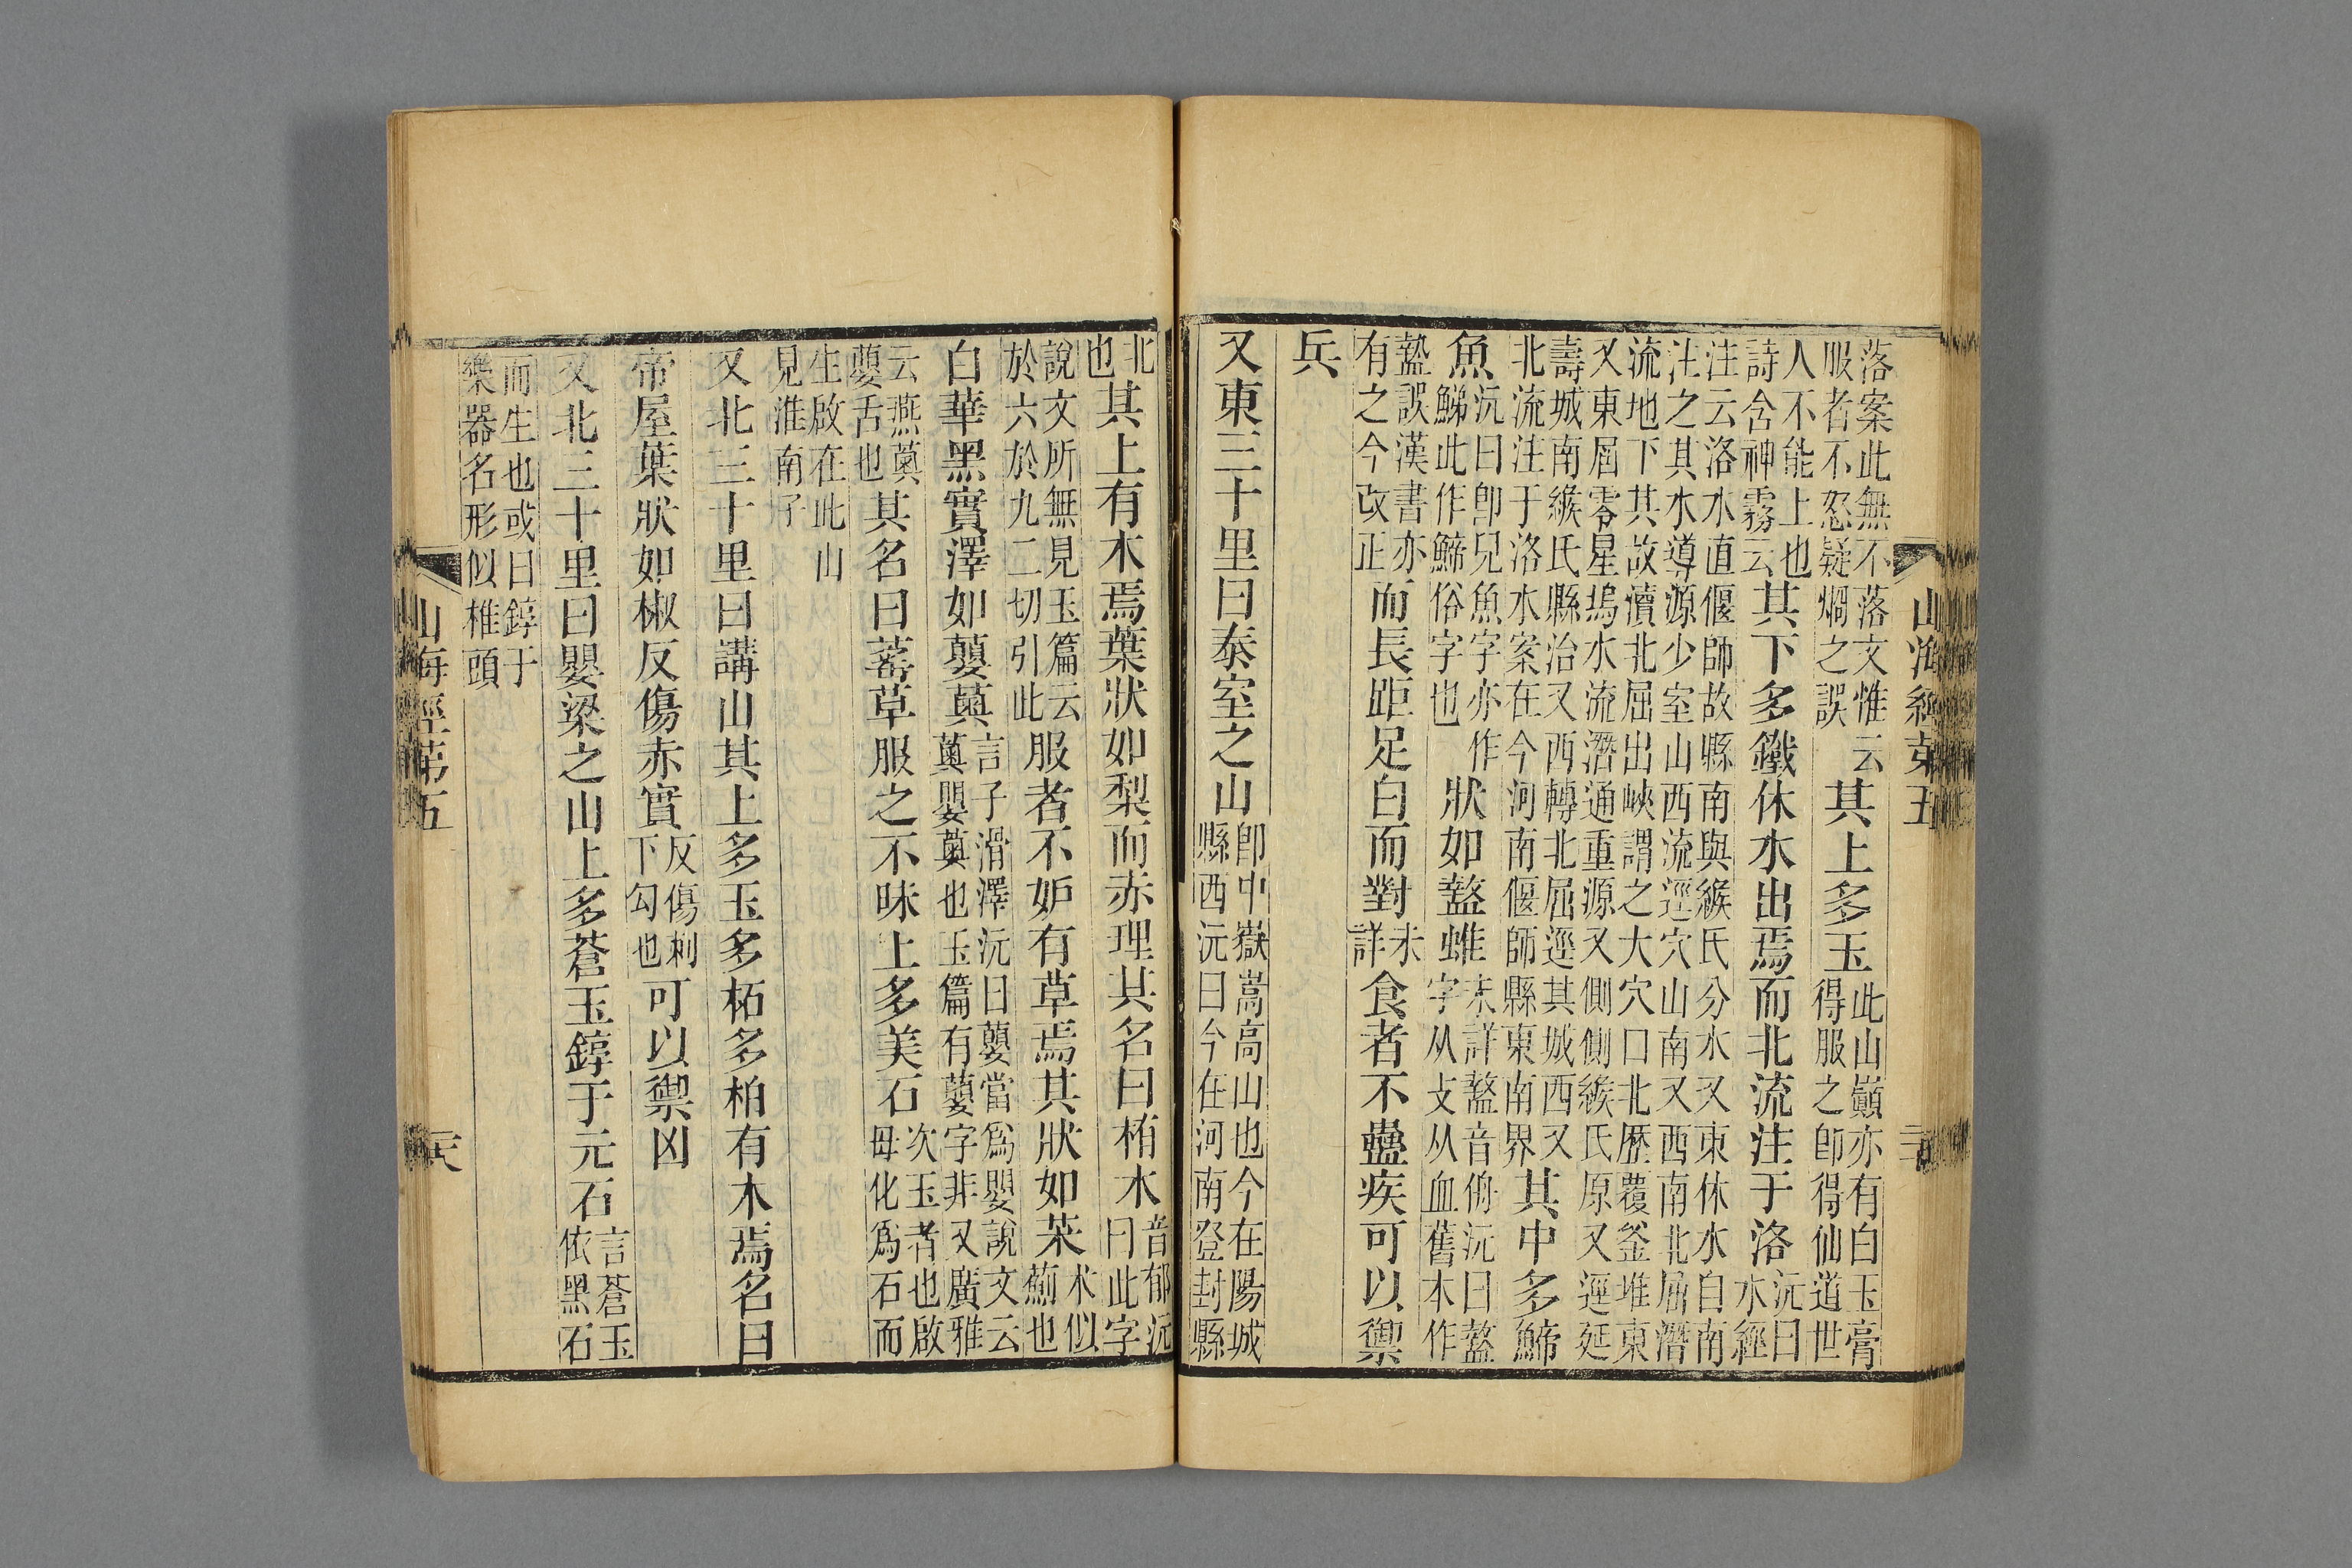 山海經第五
落案此無不落文惟云
服者不怒疑爛之誤
其上多玉
此山巔亦有白玉膏
得服之卽得仙道世
人不能上也
詩含神霧云
其下多鐵休水出焉而北流注于洛
沅曰
水經
注云洛水直偃師故縣南與緱氏分水又東休水自南
注之其水導源少室山西流逕穴山南又西南北屈潛
流地下其故瀆北屈出峽謂之大穴口北歷覆釜堆東
又東屆零星塢水流潛通重源又側側緱氏原又逕延
壽城南緱氏縣治又西轉北屈逕其城西又
北流注于洛水案在今河南偃師縣東南界
其中多䱱
魚
沅曰卽兒魚字亦作
鮷此作䱱俗字也
狀如盩蜼
未詳盩音侜沅曰盩
字从攴从血舊本作
誤漢書亦
有之今改正
而長距足白而對
未
詳
食者不蠱疾可以禦
兵
又東三十里曰泰室之山
卽中嶽嵩高山也今在陽城
縣西沅曰今在河南登封縣
北
也
其上有木焉葉狀如梨而赤理其名曰栯木
音郁沅
曰此字
說文所無見玉篇云
於六於九二切引此
服者不妒有草焉其狀如𦬸
朮似
薊也
白華黑實澤如蘡薁
言子滑澤沅曰蘡當爲嬰說文云
薁嬰薁也玉篇有蘡字非又廣雅
云燕薁
蘡舌也
其名曰䔄草服之不昧上多美石
次玉者也啟
母化爲石而
生啟在此山
見淮南子
又北三十里曰講山其上多玉多柘多柏有木焉名曰
帝屋葉狀如椒反傷赤實
反傷刺
下勾也
可以禦凶
又北三十里曰嬰梁之山上多蒼玉錞于元石
言蒼玉
依黑石
而生也或曰錞于
樂器名形似椎頭
山海經第五